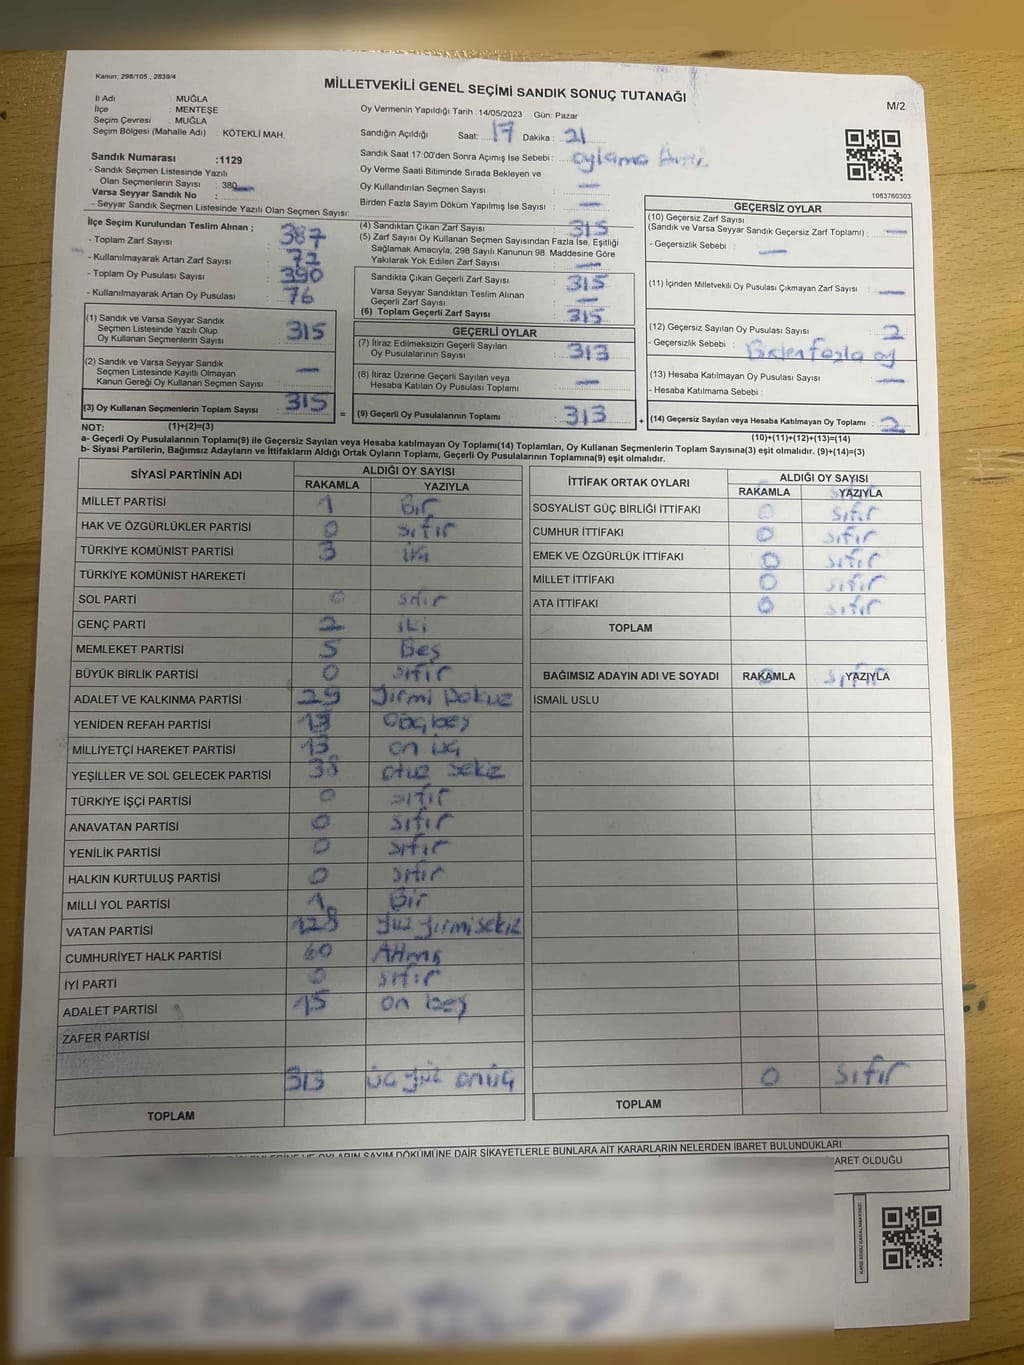 Kanun, 298/105 , 2839/4
MİLLETVEKİLİ GENEL SEÇİMİ SANDIK SONUÇ TUTANAĞI
M/2
İl Adı : MUĞLA
İlçe : MENTEŞE
Seçim Çevresi : MUĞLA
Seçim Bölgesi (Mahalle Adı) : KÖTEKLİ MAH.
Oy Vermenin Yapıldığı Tarih :14/05/2023 Gün: Pazar
Sandığın Açıldığı Saat: 17 Dakika : 21
Sandık Saat 17:00'den Sonra Açımış İse Sebebi : oylama
Oy Verme Saati Bitiminde Sırada Bekleyen ve
Oy Kullandırılan Seçmen Sayısı : —
Birden Fazla Sayım Döküm Yapılmış İse Sayısı : —
Sandık Numarası :1129
- Sandık Seçmen Listesinde Yazılı
Olan Seçmenlerin Sayısı : 380
Varsa Seyyar Sandık No :
- Seyyar Sandık Seçmen Listesinde Yazılı Olan Seçmen Sayısı:
1083760303
İlçe Seçim Kurulundan Teslim Alınan ;
- Toplam Zarf Sayısı : 387
- Kullanılmayarak Artan Zarf Sayısı : 72
- Toplam Oy Pusulası Sayısı : 390
- Kullanılmayarak Artan Oy Pusulası : 76
(1) Sandık ve Varsa Seyyar Sandık
Seçmen Listesinde Yazılı Olup
Oy Kullanan Seçmenlerin Sayısı : 315
(2) Sandık ve Varsa Seyyar Sandık
Seçmen Listesinde Kayıtlı Olmayan
Kanun Gereği Oy Kullanan Seçmen Sayısı : —
(3) Oy Kullanan Seçmenlerin Toplam Sayısı : 315
(1)+(2)=(3)
(4) Sandıktan Çıkan Zarf Sayısı : 315
(5) Zarf Sayısı Oy Kullanan Seçmen Sayısından Fazla İse, Eşitliği
Sağlamak Amacıyla, 298 Sayılı Kanunun 98. Maddesine Göre
Yakılarak Yok Edilen Zarf Sayısı : —
Sandıkta Çıkan Geçerli Zarf Sayısı : 315
Varsa Seyyar Sandıktan Teslim Alınan
Geçerli Zarf Sayısı : —
(6) Toplam Geçerli Zarf Sayısı : 315
GEÇERLİ OYLAR
(7) İtiraz Edilmeksizin Geçerli Sayılan
Oy Pusulalarının Sayısı : 313
(8) İtiraz Üzerine Geçerli Sayılan veya
Hesaba Katılan Oy Pusulası Toplamı : —
= (9) Geçerli Oy Pusulalarının Toplamı : 313
GEÇERSİZ OYLAR
(10) Geçersiz Zarf Sayısı
(Sandık ve Varsa Seyyar Sandık Geçersiz Zarf Toplamı) : —
- Geçersizlik Sebebi : —
(11) İçinden Milletvekili Oy Pusulası Çıkmayan Zarf Sayısı : —
(12) Geçersiz Sayılan Oy Pusulası Sayısı : 2
- Geçersizlik Sebebi : Birden fazla oy
(13) Hesaba Katılmayan Oy Pusulası Sayısı : —
- Hesaba Katılmama Sebebi :
+ (14) Geçersiz Sayılan veya Hesaba Katılmayan Oy Toplamı : 2
(10)+(11)+(12)+(13)=(14)
NOT:
a- Geçerli Oy Pusulalarının Toplamı(9) ile Geçersiz Sayılan veya Hesaba katılmayan Oy Toplamı(14) Toplamları, Oy Kullanan Seçmenlerin Toplam Sayısına(3) eşit olmalıdır. (9)+(14)=(3)
b- Siyasi Partilerin, Bağımsız Adayların ve İttifakların Aldığı Ortak Oyların Toplamı, Geçerli Oy Pusulalarının Toplamına(9) eşit olmalıdır.
SİYASİ PARTİNİN ADI ALDIĞI OY SAYISI
RAKAMLA YAZIYLA
MİLLET PARTİSİ 1 Bir
HAK VE ÖZGÜRLÜKLER PARTİSİ 0 sıfır
TÜRKİYE KOMÜNİST PARTİSİ 3 üç
TÜRKİYE KOMÜNİST HAREKETİ
SOL PARTİ 0 sıfır
GENÇ PARTİ 2 iki
MEMLEKET PARTİSİ 5 Beş
BÜYÜK BİRLİK PARTİSİ 0 sıfır
ADALET VE KALKINMA PARTİSİ 29 Yirmi Dokuz
YENİDEN REFAH PARTİSİ
MİLLİYETÇİ HAREKET PARTİSİ 13 on üç
YEŞİLLER VE SOL GELECEK PARTİSİ 38 otuz sekiz
TÜRKİYE İŞÇİ PARTİSİ 0 sıfır
ANAVATAN PARTİSİ 0 sıfır
YENİLİK PARTİSİ 0 sıfır
HALKIN KURTULUŞ PARTİSİ 0 sıfır
MİLLİ YOL PARTİSİ 1 Bir
VATAN PARTİSİ 128 Yüz yirmisekiz
CUMHURİYET HALK PARTİSİ 60 Altmış
İYİ PARTİ 0 sıfır
ADALET PARTİSİ 15 on beş
ZAFER PARTİSİ
313 üç yüz onüç
TOPLAM
İTTİFAK ORTAK OYLARI ALDIĞI OY SAYISI
RAKAMLA YAZIYLA
SOSYALİST GÜÇ BİRLİĞİ İTTİFAKI 0 sıfır
CUMHUR İTTİFAKI 0 sıfır
EMEK VE ÖZGÜRLÜK İTTİFAKI 0 sıfır
MİLLET İTTİFAKI 0 sıfır
ATA İTTİFAKI 0 sıfır
TOPLAM
BAĞIMSIZ ADAYIN ADI VE SOYADI RAKAMLA YAZIYLA
0 sıfır
İSMAİL USLU
0 sıfır
TOPLAM
OYLARIN SAYIM DÖKÜMÜNE DAİR ŞİKAYETLERLE BUNLARA AİT KARARLARIN NELERDEN İBARET BULUNDUKLARI
OLDUĞU